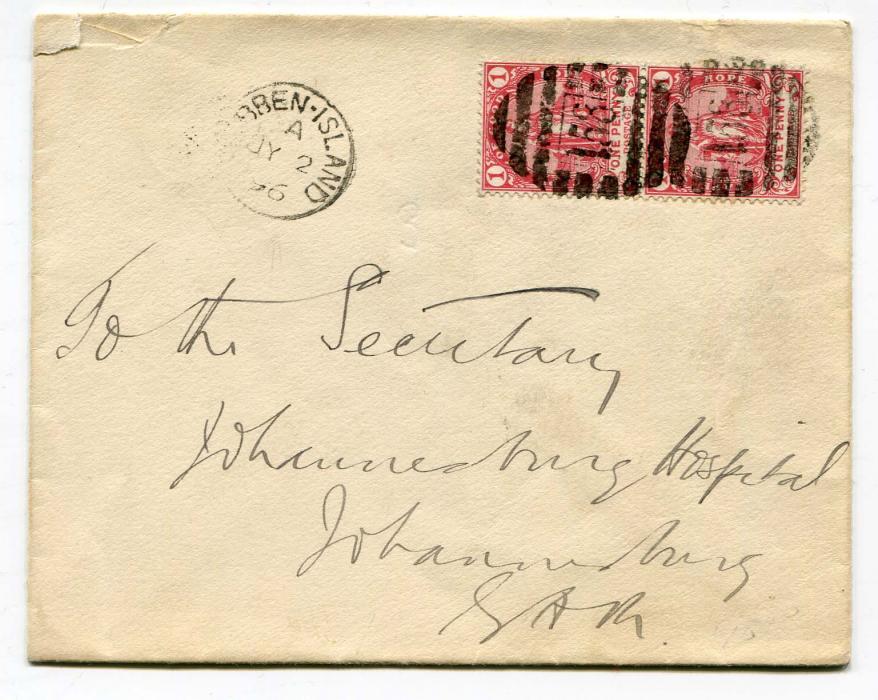 BBEN-ISLAND
A
JY 2
96
1 HOPE 1
ONE PENNY
POSTAGE
HOPE
ONE PENNY
To the Secretary
Johannesburg Hospital
Johannesburg